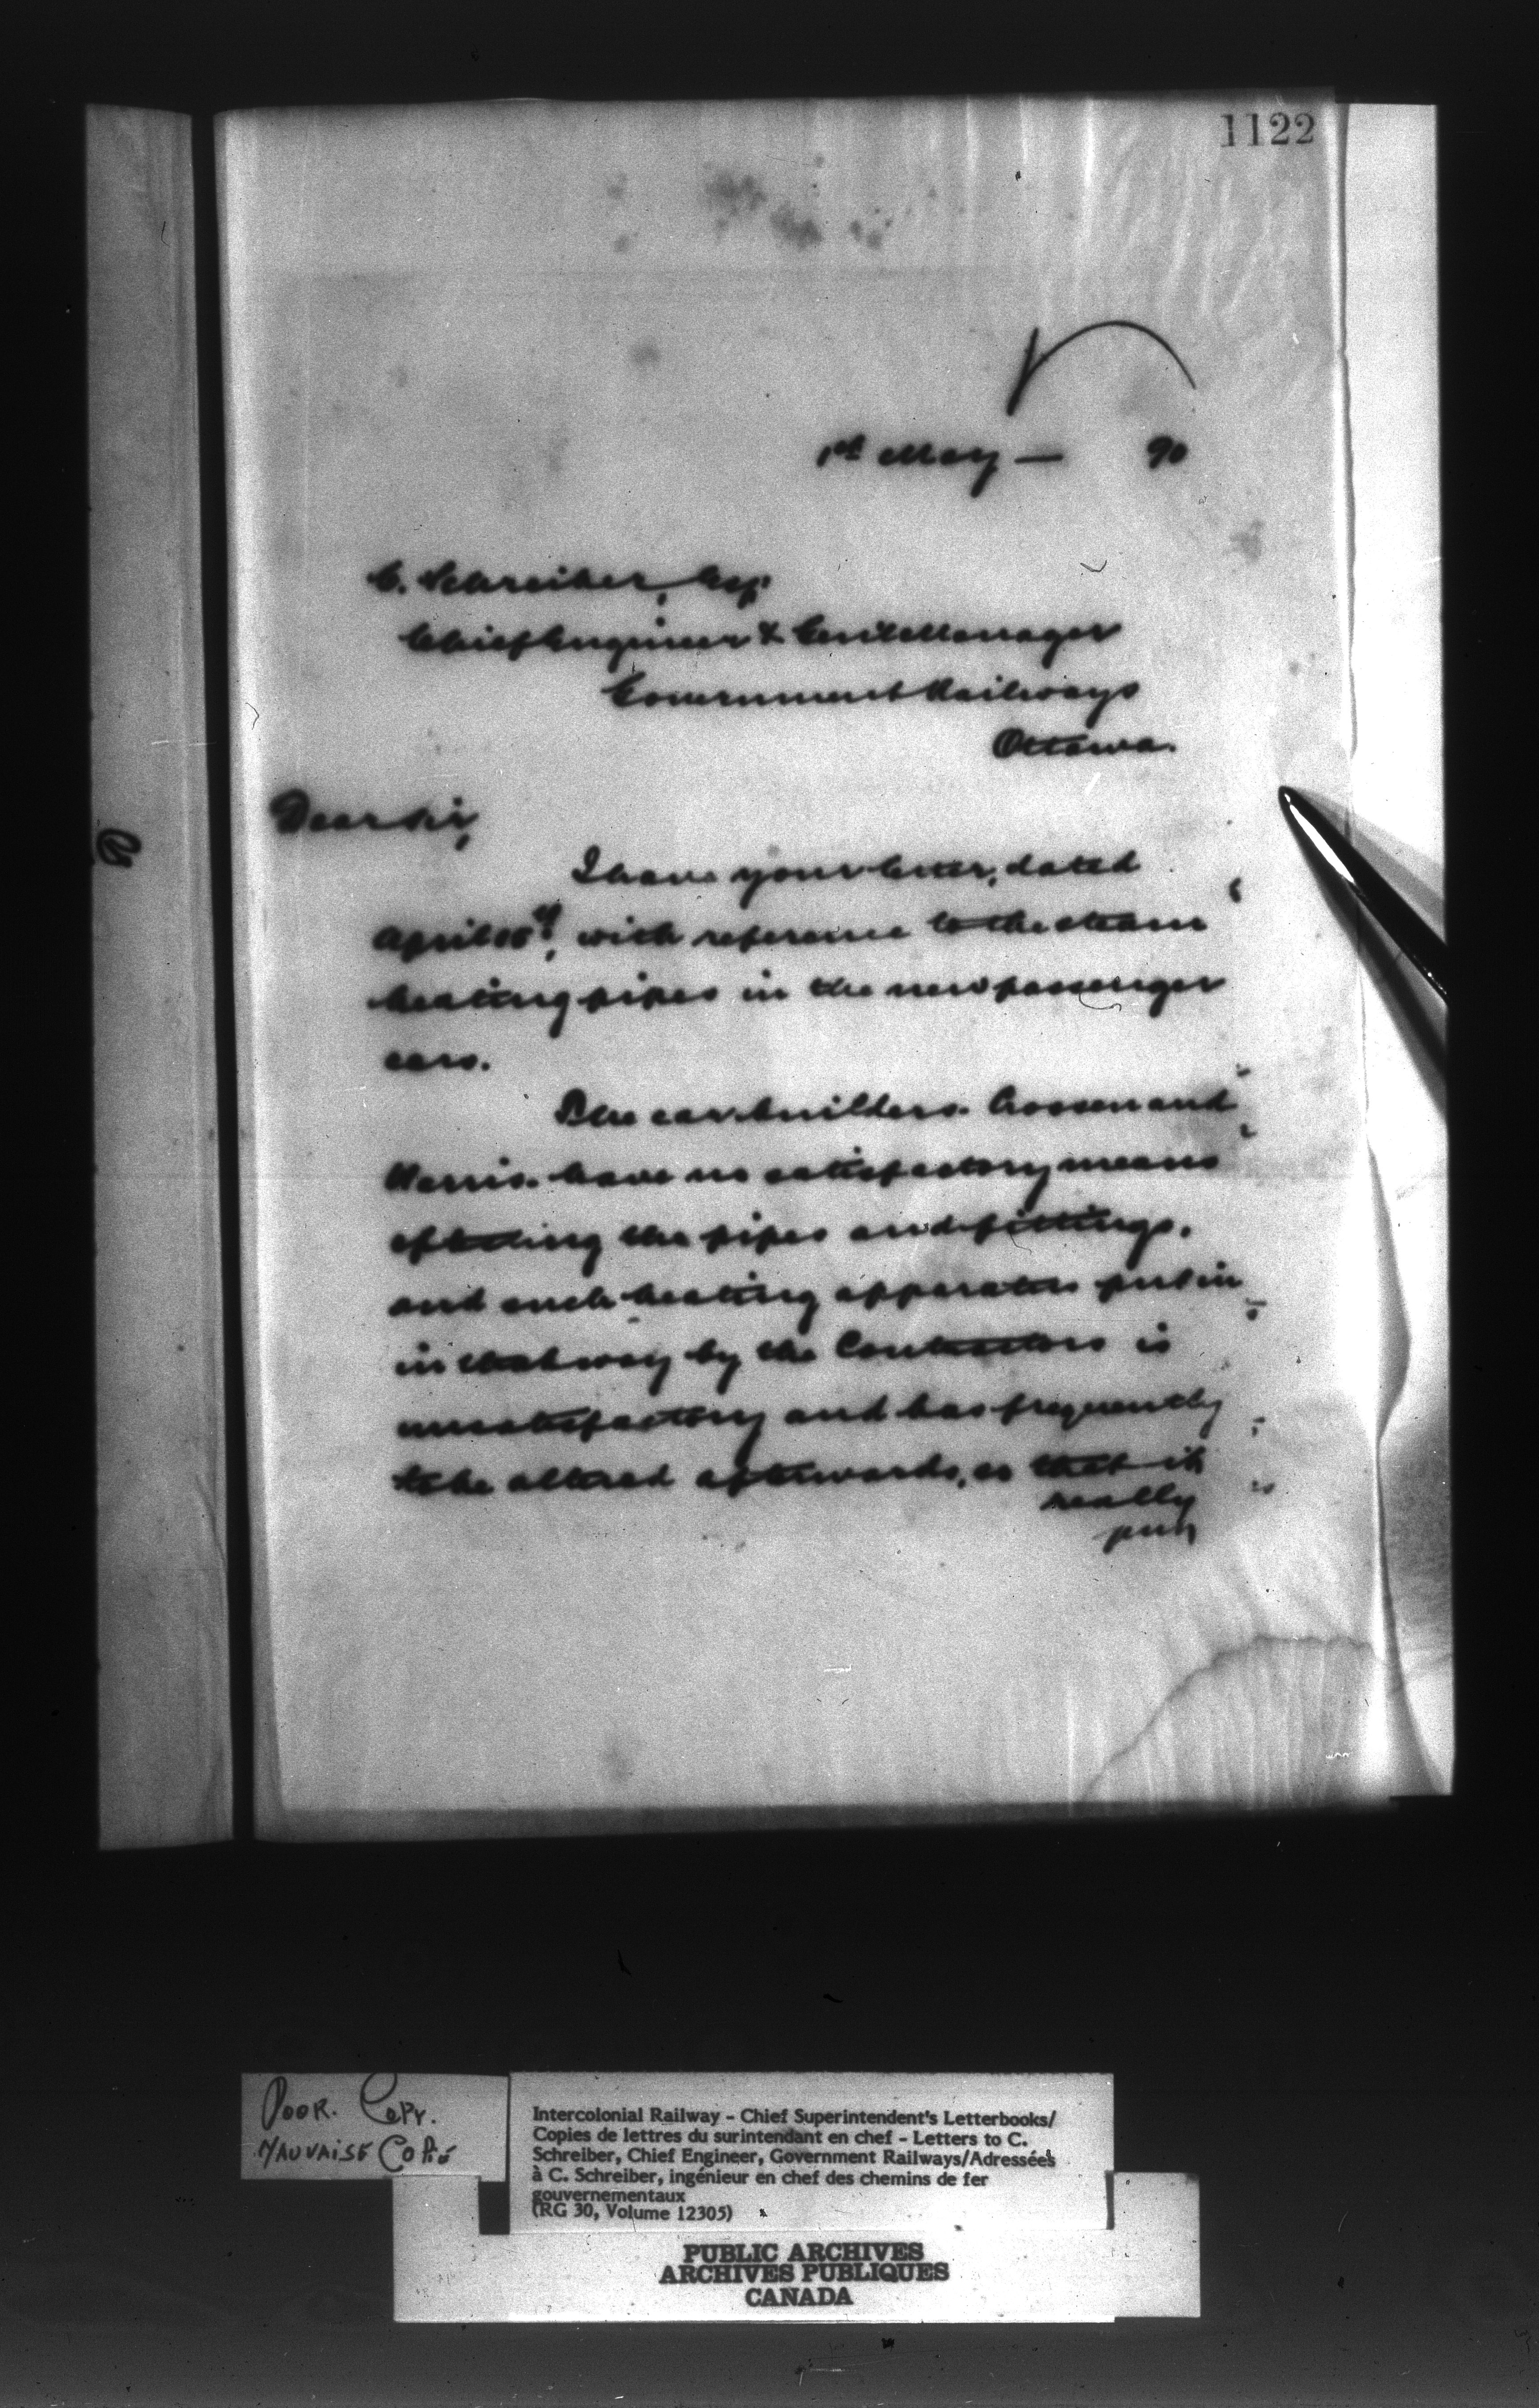 1122
1st May — 90
C. Schreiber, Esq.
Chief Engineer & Genl Manager
Government Railways
Ottawa.
Dear Sir,
I have your letter, dated
April with reference to the steam
heating pipes in the new passenger
cars.
The car builders. Crossen and
Harris. have no satisfactory means
of testing the pipes and fittings,
and such heating apparatus put in
in that way by the Contractors is
unsatisfactory and has frequently
to be altered afterwards, so that it
really
POOR. COPY.
MAUVAISE COPIE
Intercolonial Railway - Chief Superintendent's Letterbooks/
Copies de lettres du surintendant en chef - Letters to C.
Schreiber, Chief Engineer, Government Railways/Adressées
à C. Schreiber, ingénieur en chef des chemins de fer
gouvernementaux
(RG 30, Volume 12305)
PUBLIC ARCHIVES
ARCHIVES PUBLIQUES
CANADA